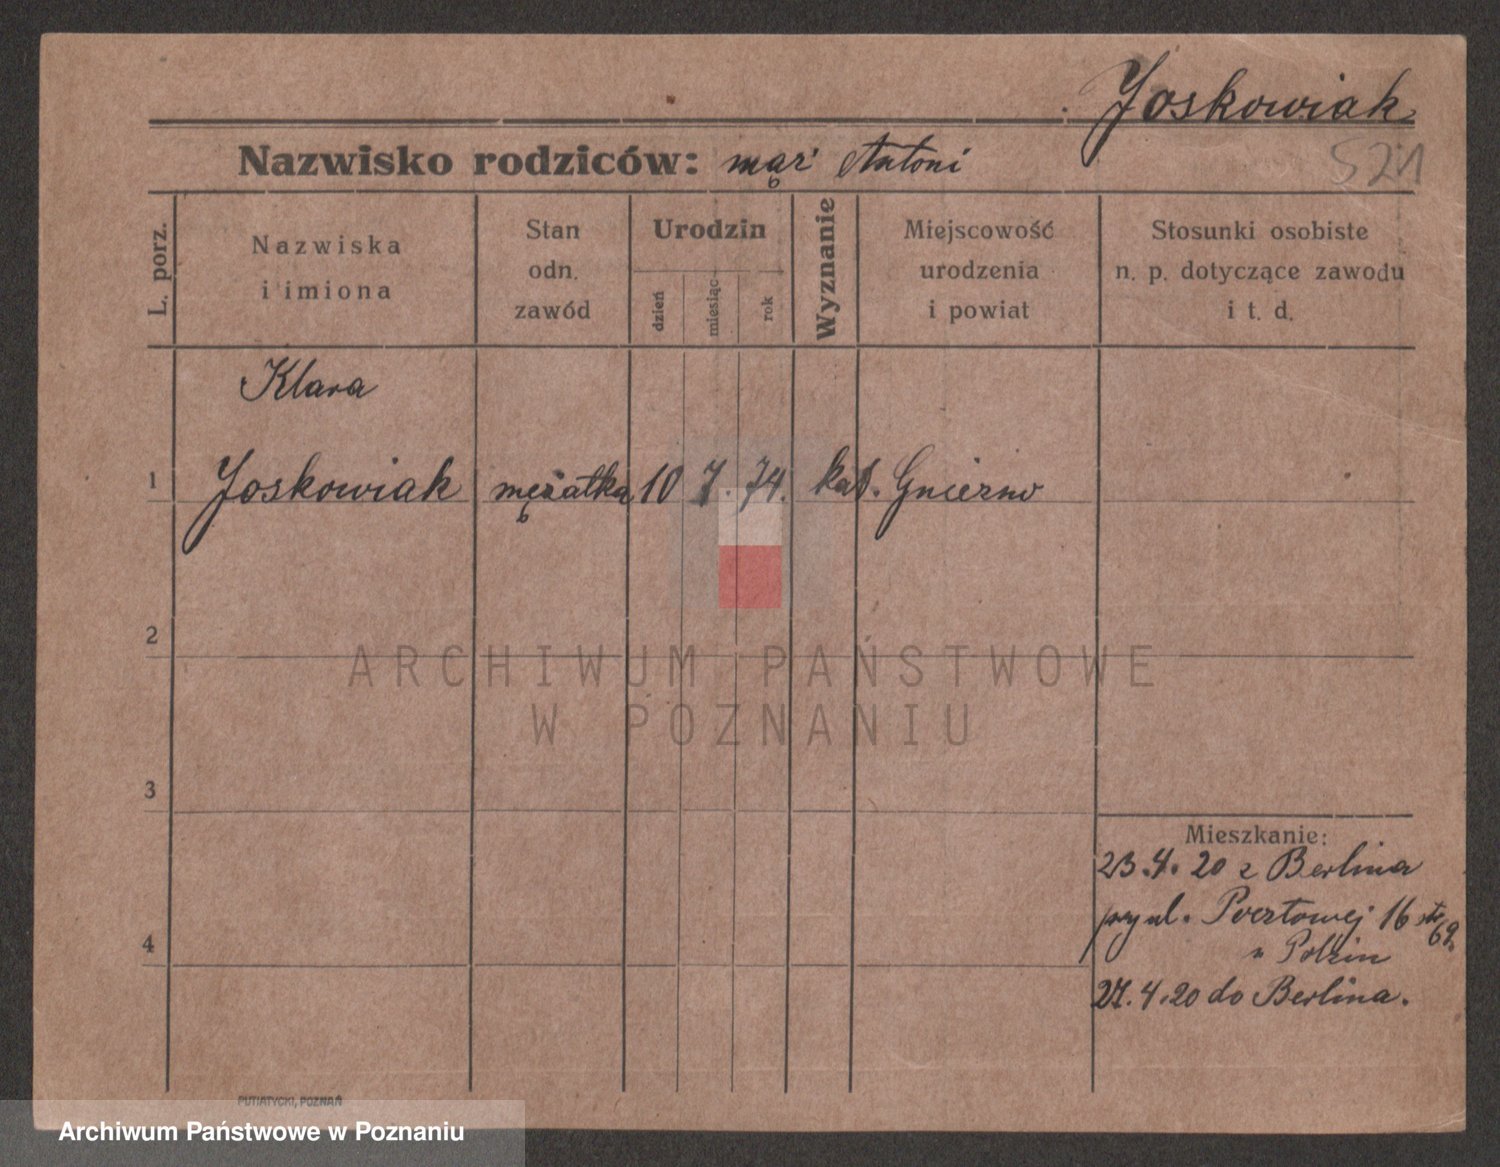 Joskowiak
521
Nazwisko rodziców: mąż Antoni
L. porz.
Nazwiska
i imiona
Stan
odn.
zawód
Urodzin
dzień
miesiąc
rok
Wyznanie
Miejscowość
urodzenia
i powiat
Stosunki osobiste
n. p. dotyczące zawodu
i t. d.
Klara
1 Joskowiak mężatka 10 7. 74. kat. Gniezno
2
ARCHIWUM PAŃSTWOWE
W POZNANIU
3
Mieszkanie:
23.4. 20 z Berlina
przy ul. Pocztowej 16
4
27.4.20 do Berlina.
PUTIATYCKI, POZNAŃ
Archiwum Państwowe w Poznaniu